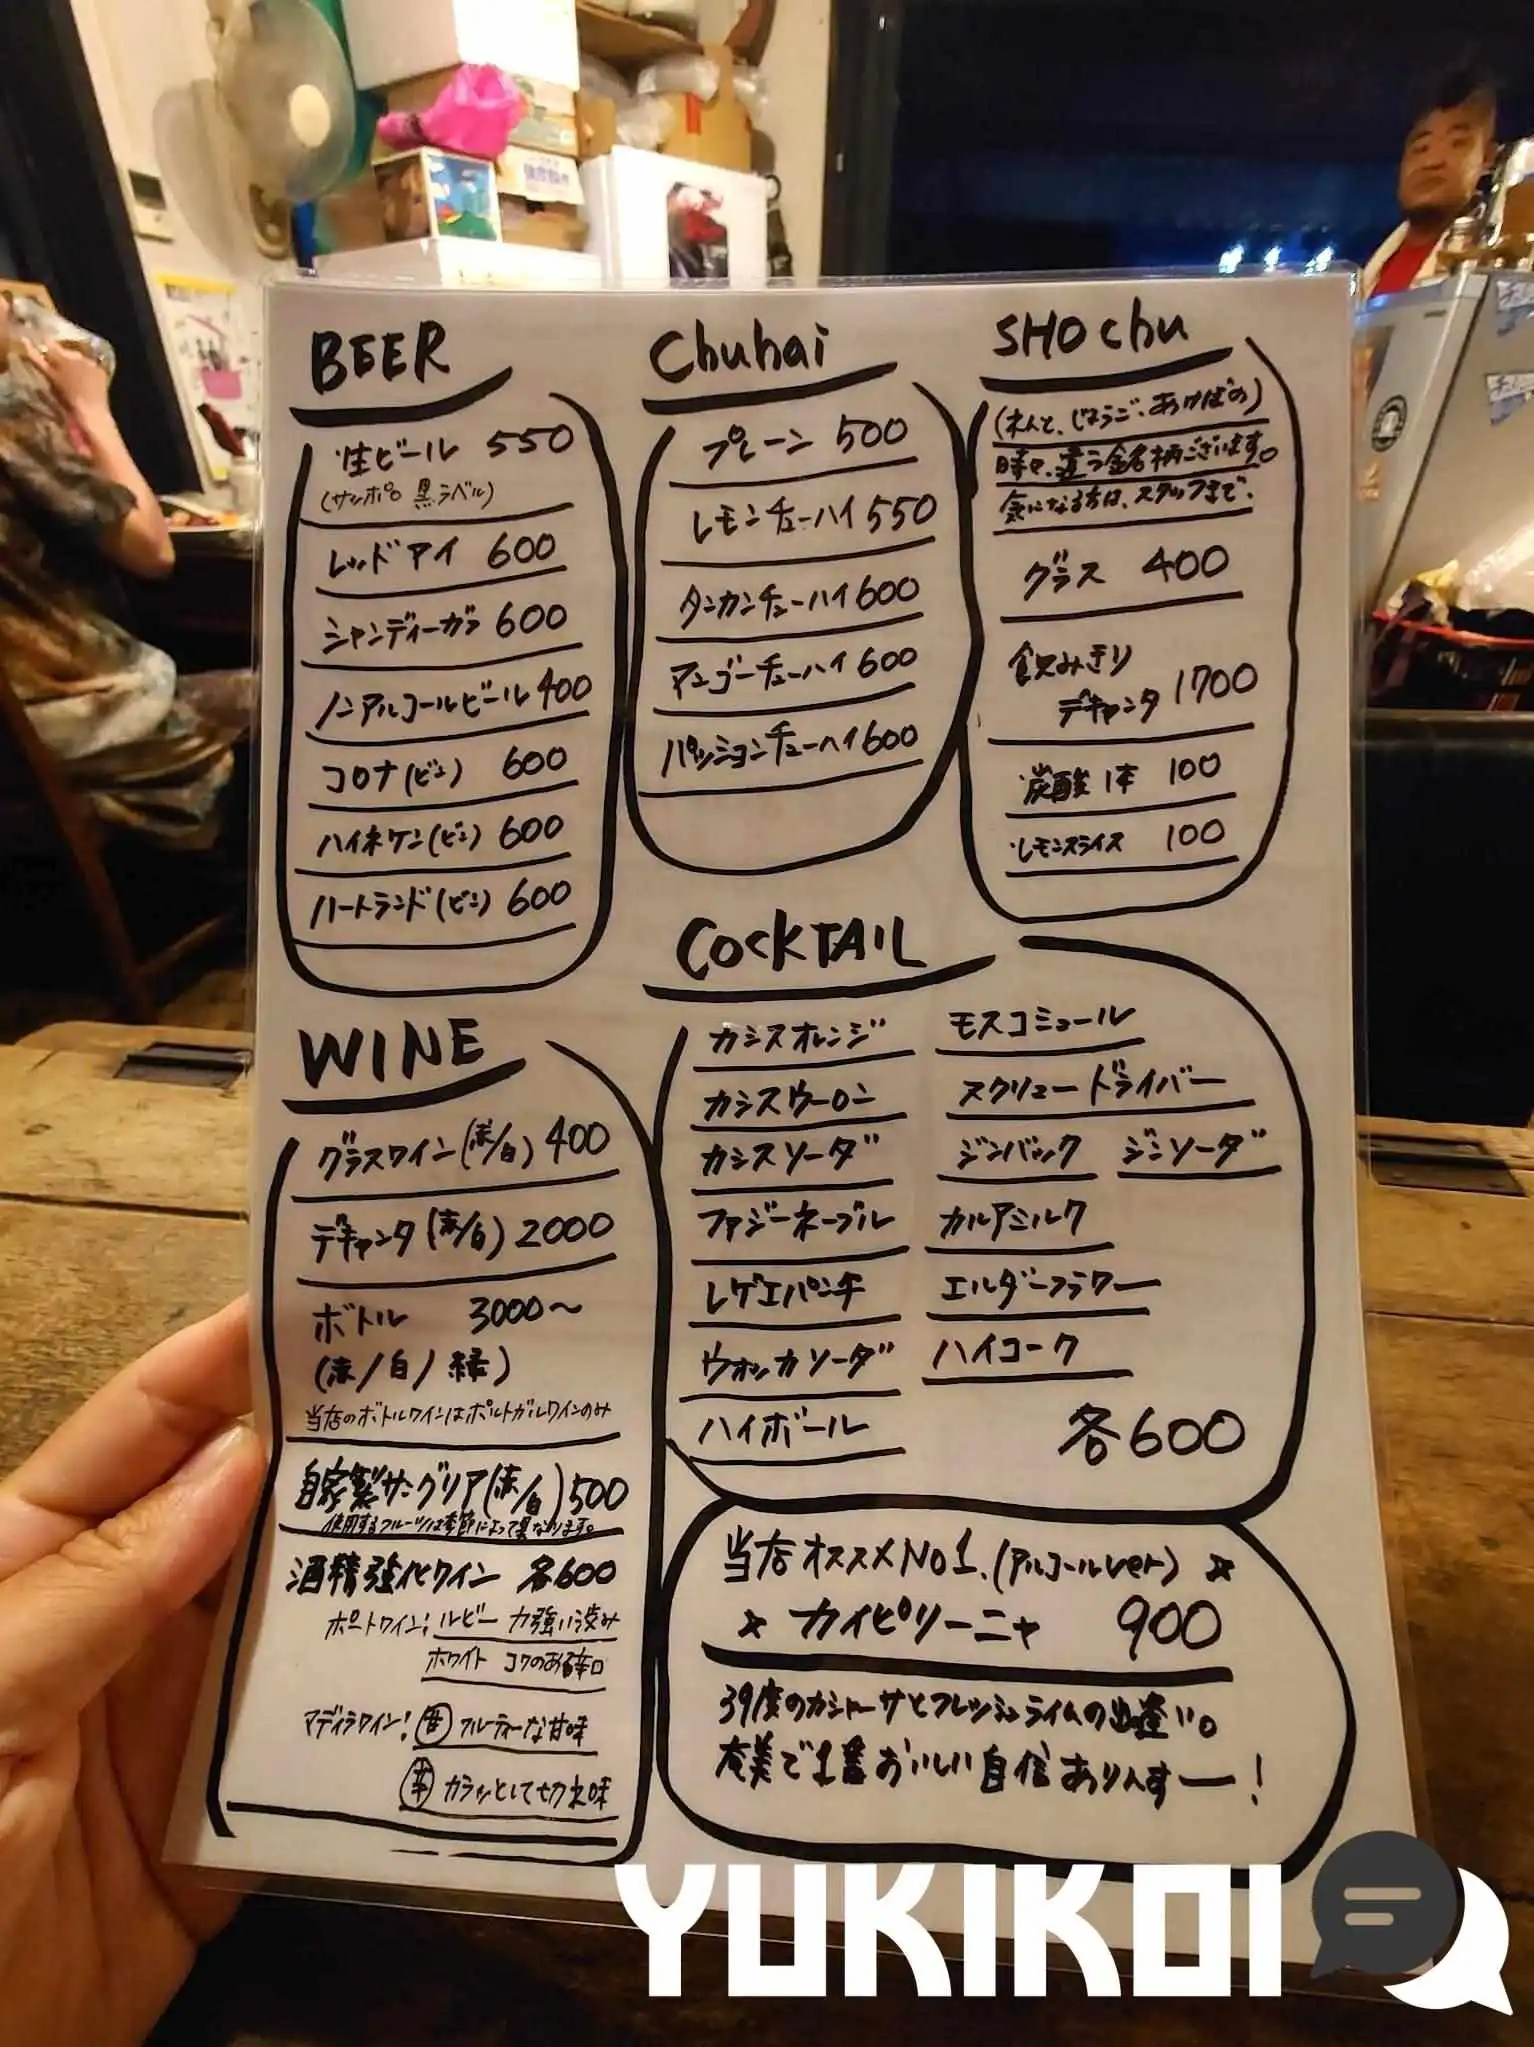 BEER
生ビール 550
(サッポロ 黒ラベル)
レッドアイ 600
シャンディーガフ 600
ノンアルコールビール 400
コロナ(ビン) 600
ハイネケン(ビン) 600
ハートランド(ビン) 600
Chuhai
プレーン 500
レモンチューハイ 550
タンカンチューハイ 600
マンゴーチューハイ 600
パッションチューハイ 600
SHOchu
(れんと、じょうご、あけぼの)
時々、違う銘柄ございます。
気になる方は、スタッフまで、
グラス 400
飲みきり
デキャンタ 1700
炭酸 1本 100
レモンスライス 100
WINE
グラスワイン(赤/白) 400
デキャンタ(赤/白) 2000
ボトル 3000〜
(赤/白/緑)
当店のボトルワインはポルトガルワインのみ
自家製サングリア(赤/白) 500
使用するフルーツは季節によって異なります。
酒精強化ワイン 各600
ポートワイン: ルビー 力強い渋み
ホワイト コクのある辛口
マディラワイン: 甘 フルーティーな甘味
辛 カラッとして切れ味
COCKTAIL
カシスオレンジ
カシスウーロン
カシスソーダ
ファジーネーブル
レゲエパンチ
ウォッカソーダ
ハイボール
モスコミュール
スクリュードライバー
ジンバック ジンソーダ
カルアミルク
エルダーフラワー
ハイコーク
各600
当店オススメNo1.(アルコールver)
カイピリーニャ 900
39度のカシャーサとフレッシュライムの出逢い。
奄美で1番おいしい自信ありまーす!
YUKIKOI